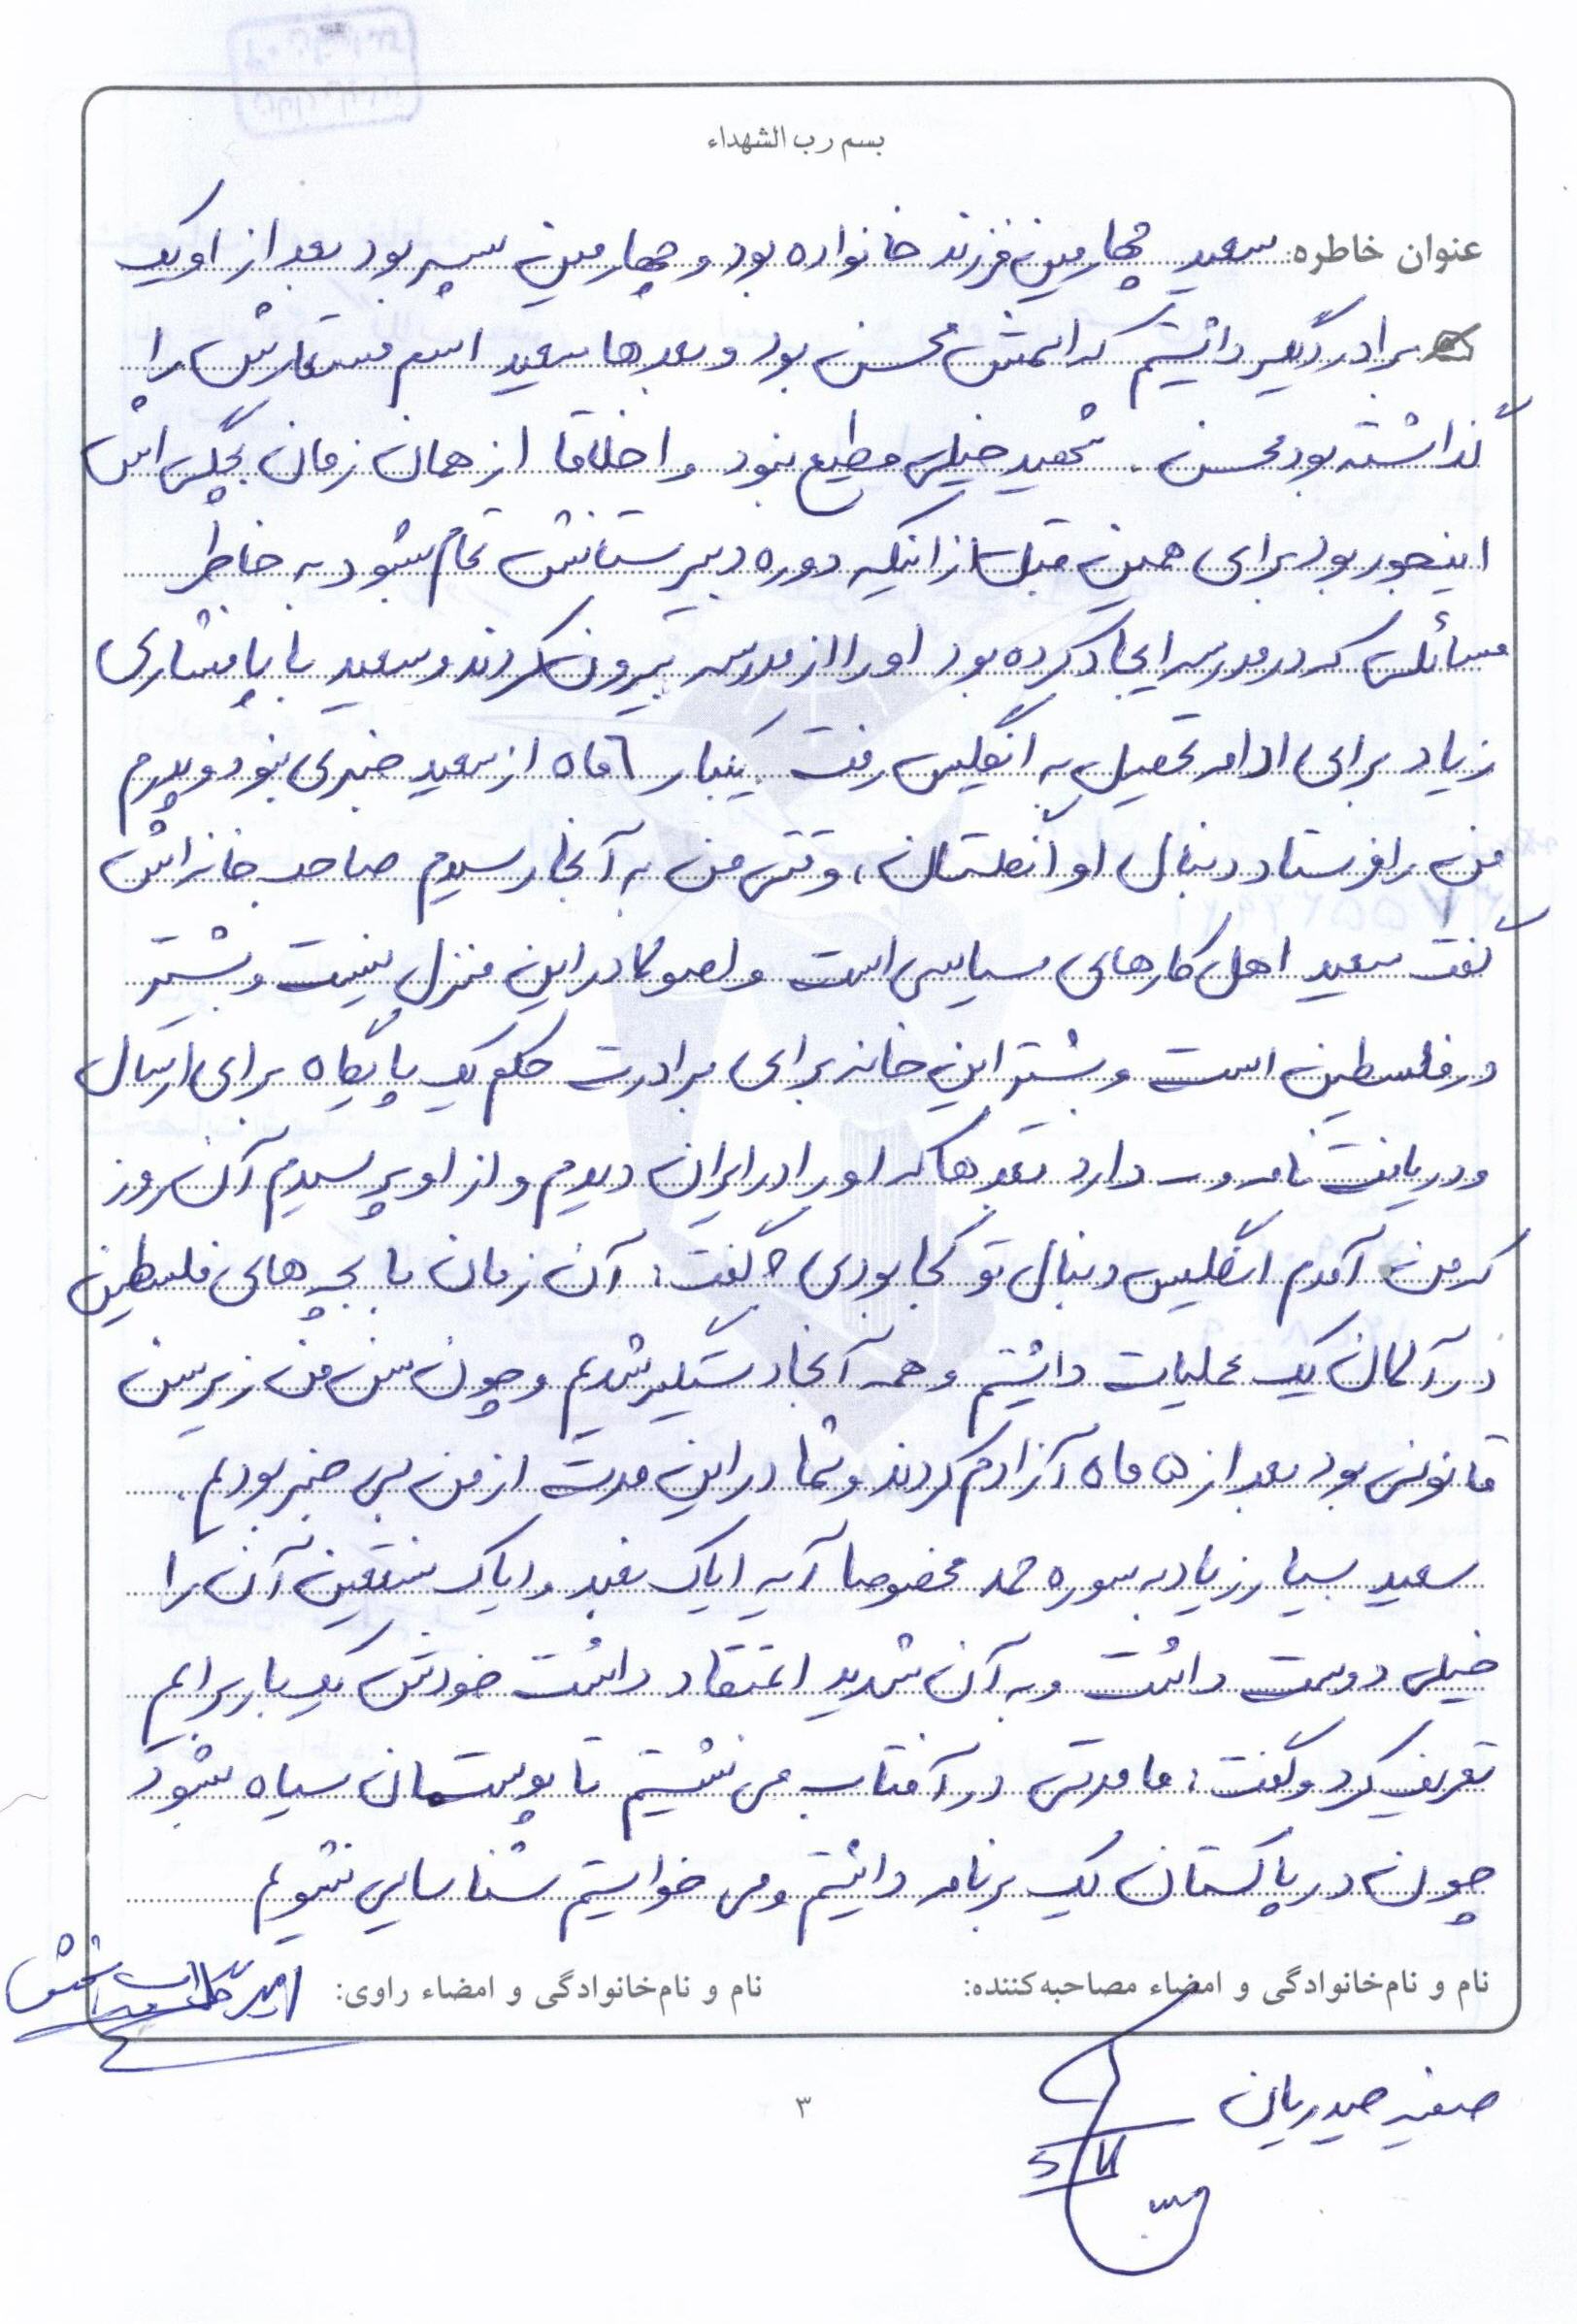 بسم رب الشهداء
عنوان خاطره: سعید چهارمین فرزند خانواده بود و چهارمین پسر بود بعد از او یک
برادر دیگر داشتیم که اسمش محسن بود و بعدها سعید اسم مستعارش را
گذاشته بود محسن . شهید خیلی مطیع نبود و اخلاقا از همان زمان بچگی اش
اینجور بود برای همین قبل از اینکه دوره دبیرستانش تمام شود به خاطر
مسائلی که در مدرسه ایجاد کرده بود او را از مدرسه بیرون کردند و سعید با پافشاری
زیاد برای ادامه تحصیل به انگلیس رفت . یکبار ٦ ماه از سعید خبری نبود و پدرم
من را فرستاد دنبال او انگلستان ، وقتی من به آنجا رسیدم صاحب خانه اش
گفت سعید اهل کارهای سیاسی است و اصولا در این منزل نیست و بیشتر
در فلسطین است و بیشتر این خانه برای برادرت حکم یک پایگاه برای ارسال
و دریافت نامه و ... دارد بعدها که او را در ایران دیدم و از او پرسیدم آن روز
که من آمدم انگلیس دنبال تو کجا بودی ؟ گفت : آن زمان با بچه های فلسطین
در آلمان یک عملیات داشتیم و همه آنجا دستگیر شدیم و چون سن من زیر سن
قانونی بود بعد از ۵ ماه آزادم کردند و شما در این مدت از من بی خبر بودیم .
سعید بسیار زیاد به سوره حمد مخصوصا آیه ایاک نعبد و ایاک نستعین آن را
خیلی دوست داشت و به آن شدید اعتقاد داشت خودش یک بار برایم
تعریف کرد و گفت : ما مدتی در آفتاب می نشستیم تا پوستمان سیاه بشود
چون در پاکستان یک برنامه داشتیم و می خواستیم شناسایی نشویم
نام و نام‌خانوادگی و امضاء مصاحبه‌کننده: نام و نام‌خانوادگی و امضاء راوی: امیر
صفیه حیدریان
۳